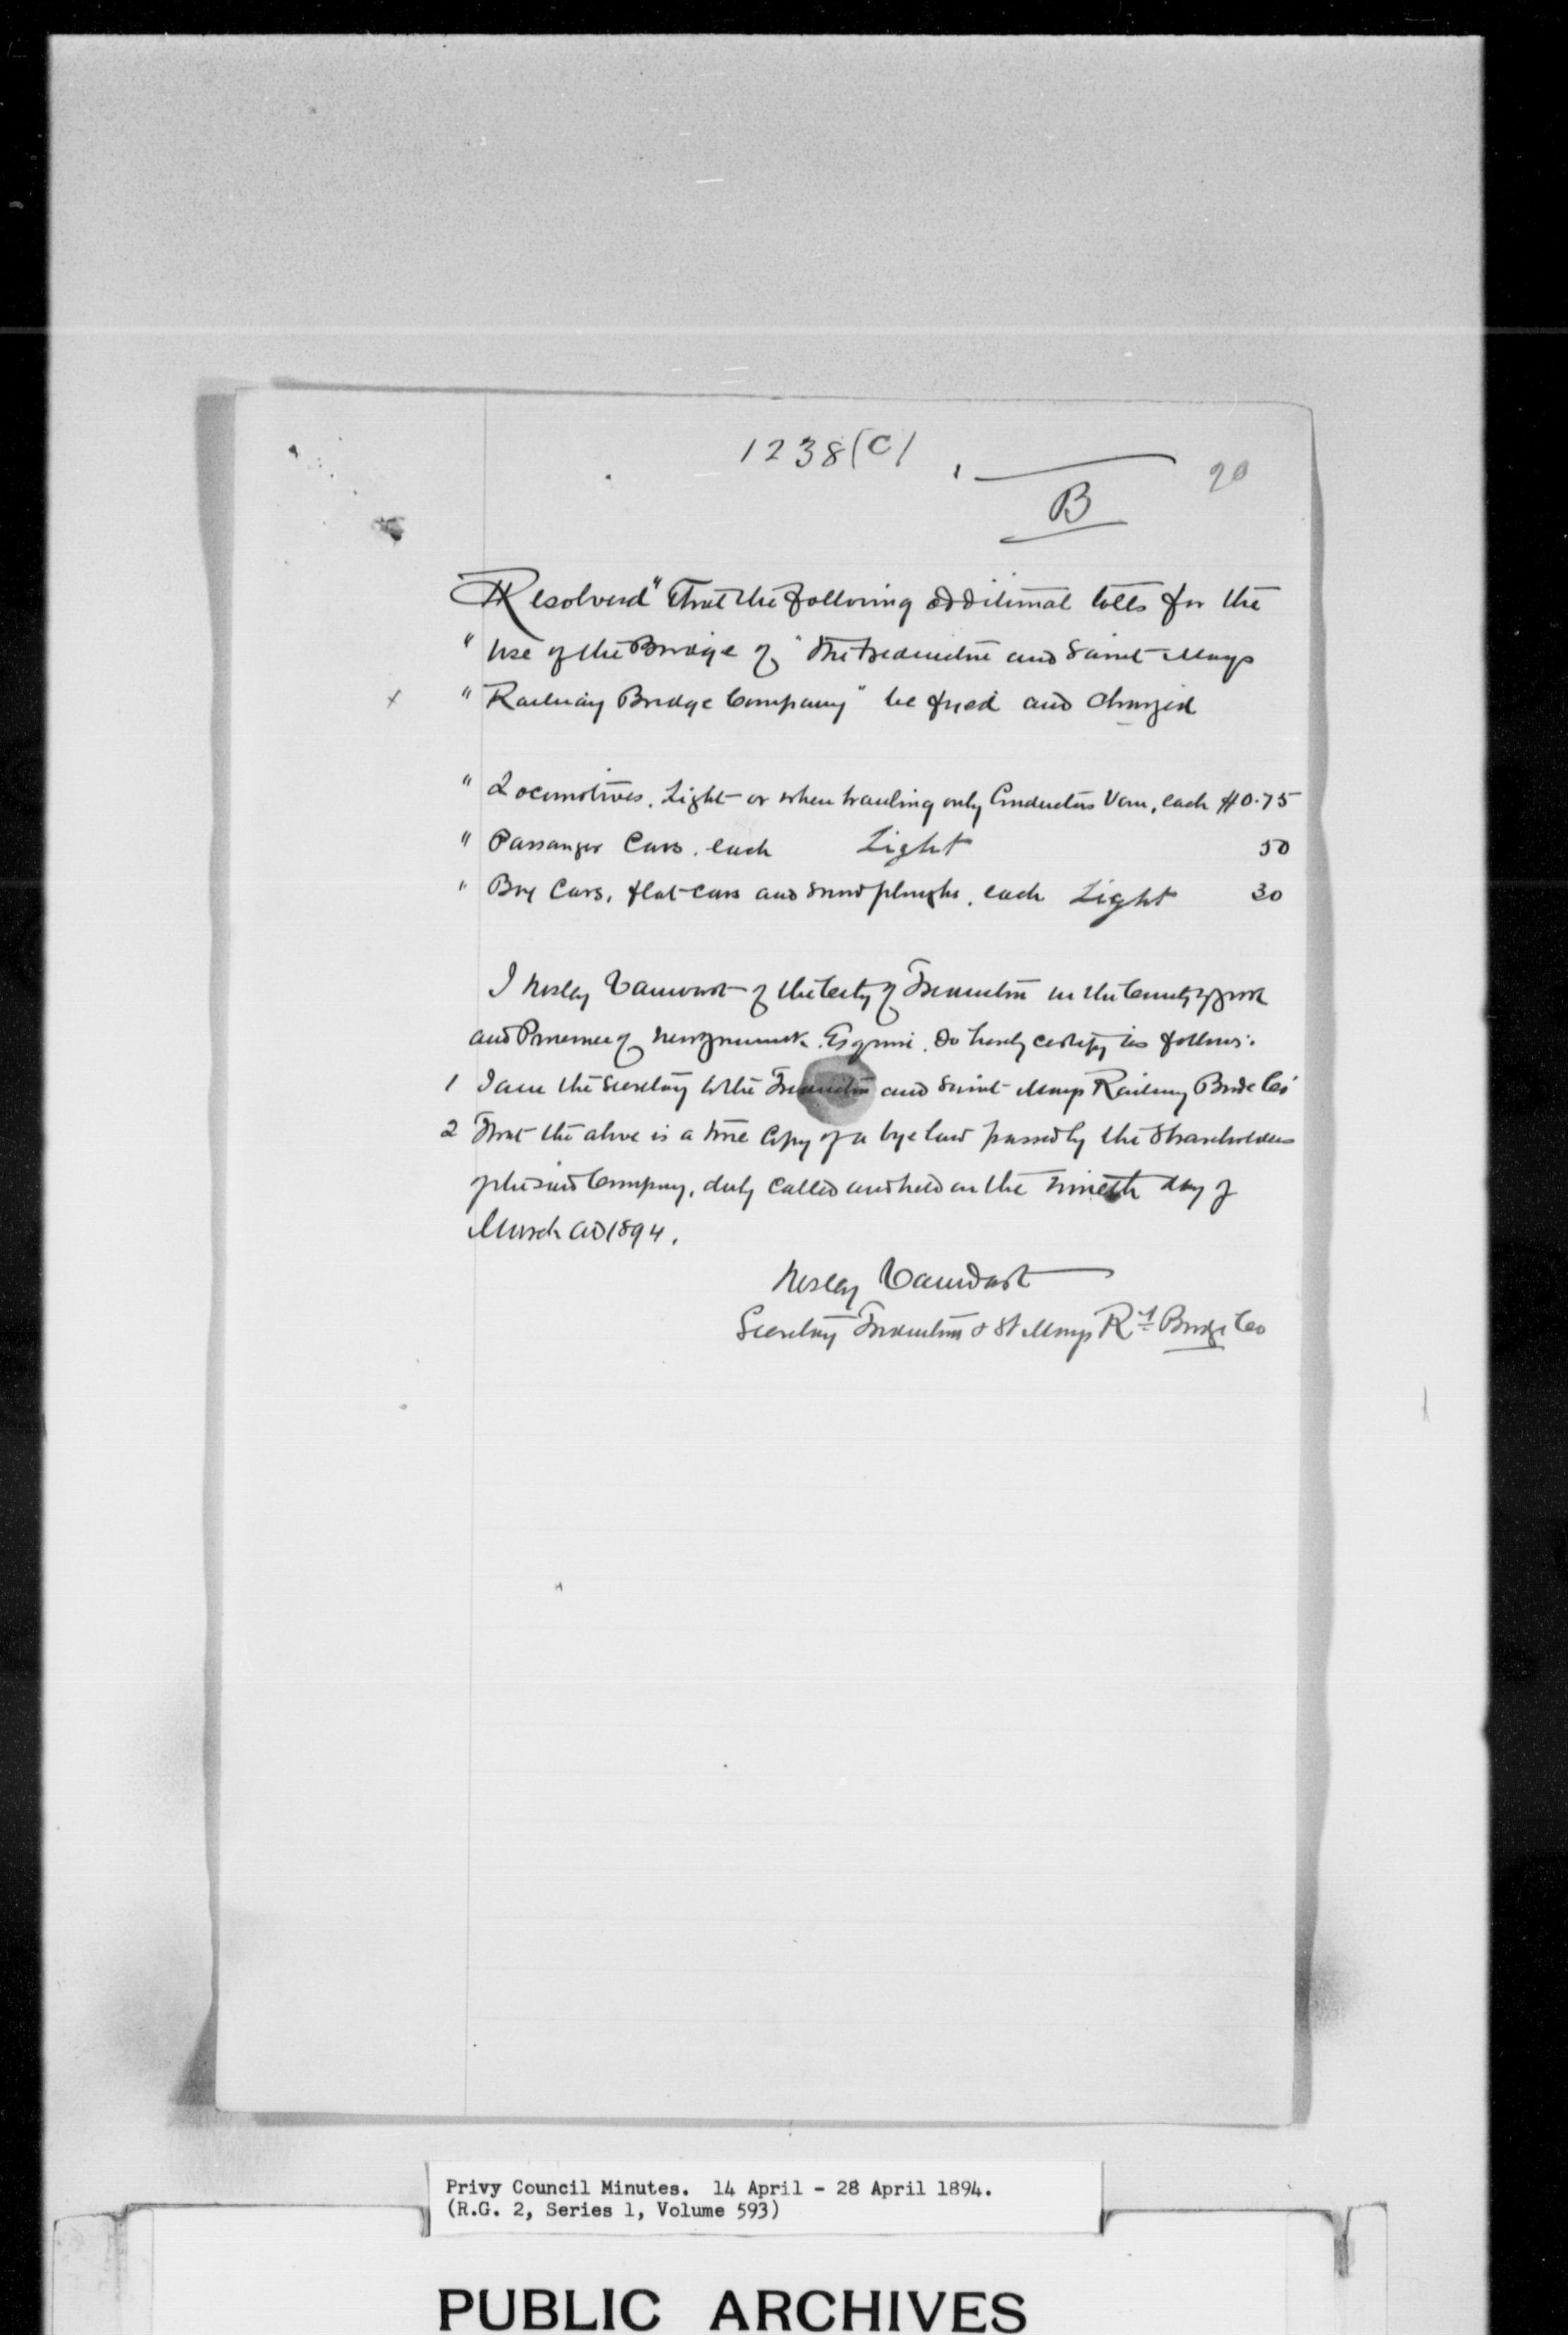 1238(C)
B
20
Resolved "That the following additional tolls for the
" Use of the Bridge of "The Fredericton and Saint Marys
" Railway Bridge Company" be fixed and charged
" Locomotives, Light or when hauling only Conductors Van, each $0.75
" Passanger Cars, each Light 50
" Box Cars, flat-cars and snow ploughs, each Light 30
I Wesley Vanwart of the City of Fredericton in the County of York
and Province of New Brunswick, Esquire, Do hereby certify as follows:
1 I am the Secretary to the Fredericton and Saint Marys Railway Bridge Co'
2 That the above is a true Copy of a bye law passed by the Shareholders
of the said Company, duly called and held on the day of
March AD 1894.
Wesley Vanwart
Secretary Fredericton & St Marys Ry Bridge Co
Privy Council Minutes. 14 April - 28 April 1894.
(R.G. 2, Series 1, Volume 593)
PUBLIC ARCHIVES